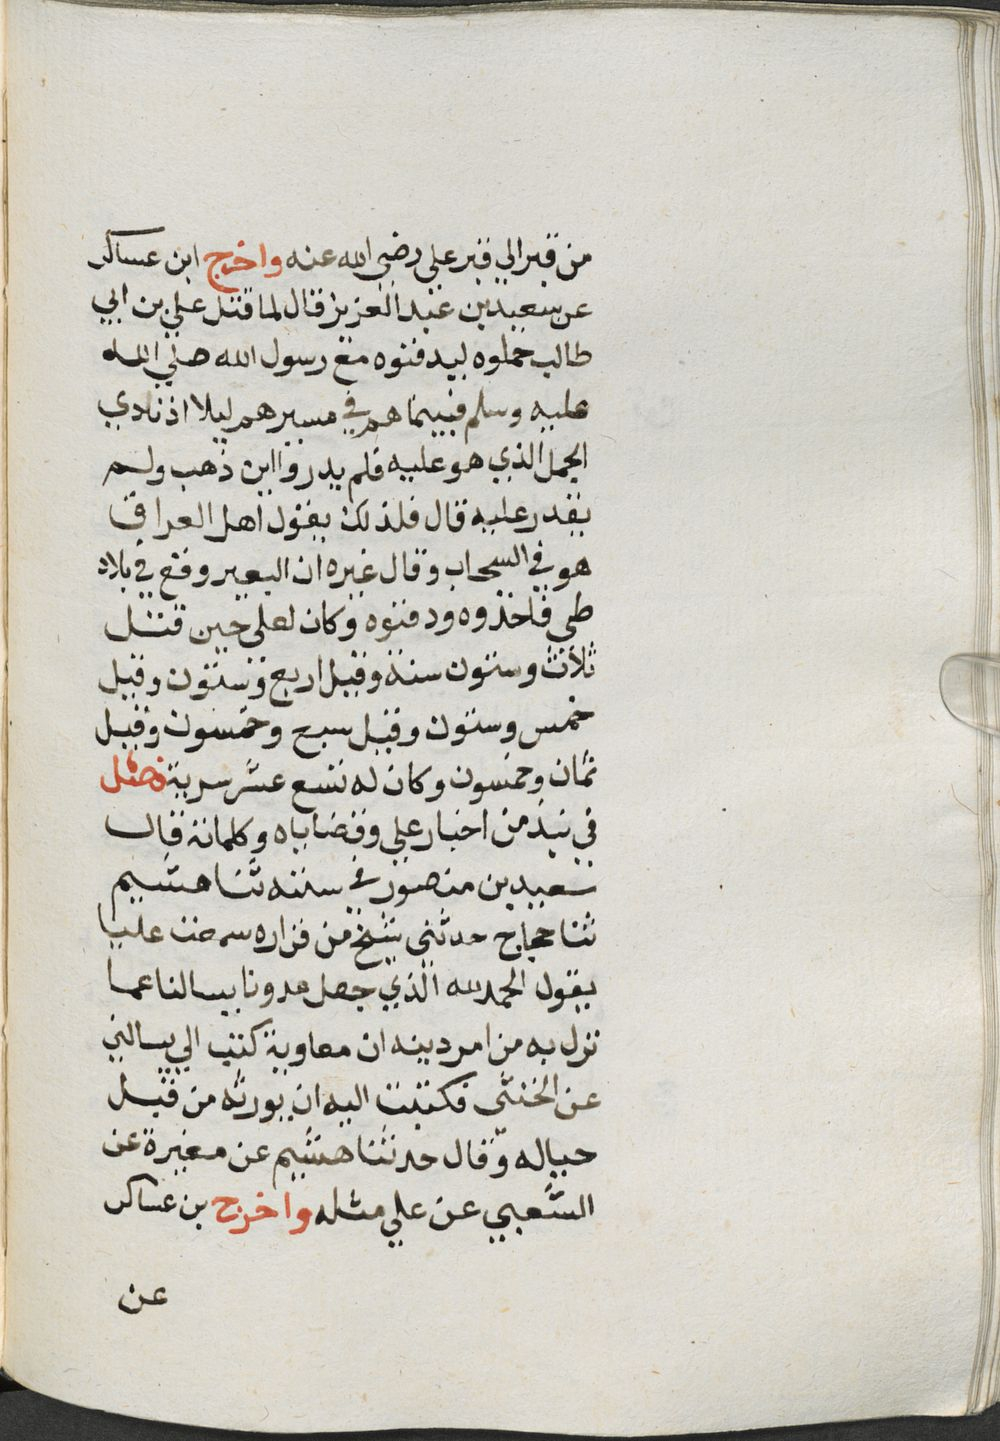 من قبر الي قبر علي رضي الله عنه واخرج ابن عساكر
عن سعيد بن عبد العزيز قال لما قتل علي بن ابي
طالب حملوه ليدفنوه مع رسول الله صلي الله
عليه وسلم فبينما هم في مسيرهم ليلا اذ نادي
الجمل الذي هو عليه فلم يدروا اين ذهب ولم
يقدر عليه قال فلذلك يقول اهل العراق
هو في السحاب وقال غيره ان البعير وقع في بلاد
طي فاخذوه ودفنوه وكان لعلي حين قتل
ثلاث وستون سنة وقيل اربع وستون وقيل
خمس وستون وقيل سبع وخمسون وقيل
ثمان وخمسون وكان له تسع عشر سرية فصل
في نبذ من اخبار علي وقضاياه وكلماته قال
سعيد بن منصور في سننه ثنا هشيم
ثنا حجاج حدثني شيخ من فزاره سمعت عليا
يقول الحمد لله الذي جعل عدونا يسالنا عما
نزل به من امر دينه ان معاوية كتب الي يسالني
عن الخنثى فكتبت اليه ان يورثه من قبل
حباله وقال حدثنا هشيم عن مغيرة عن
الشعبي عن علي مثله واخرج بن عساكر
عن